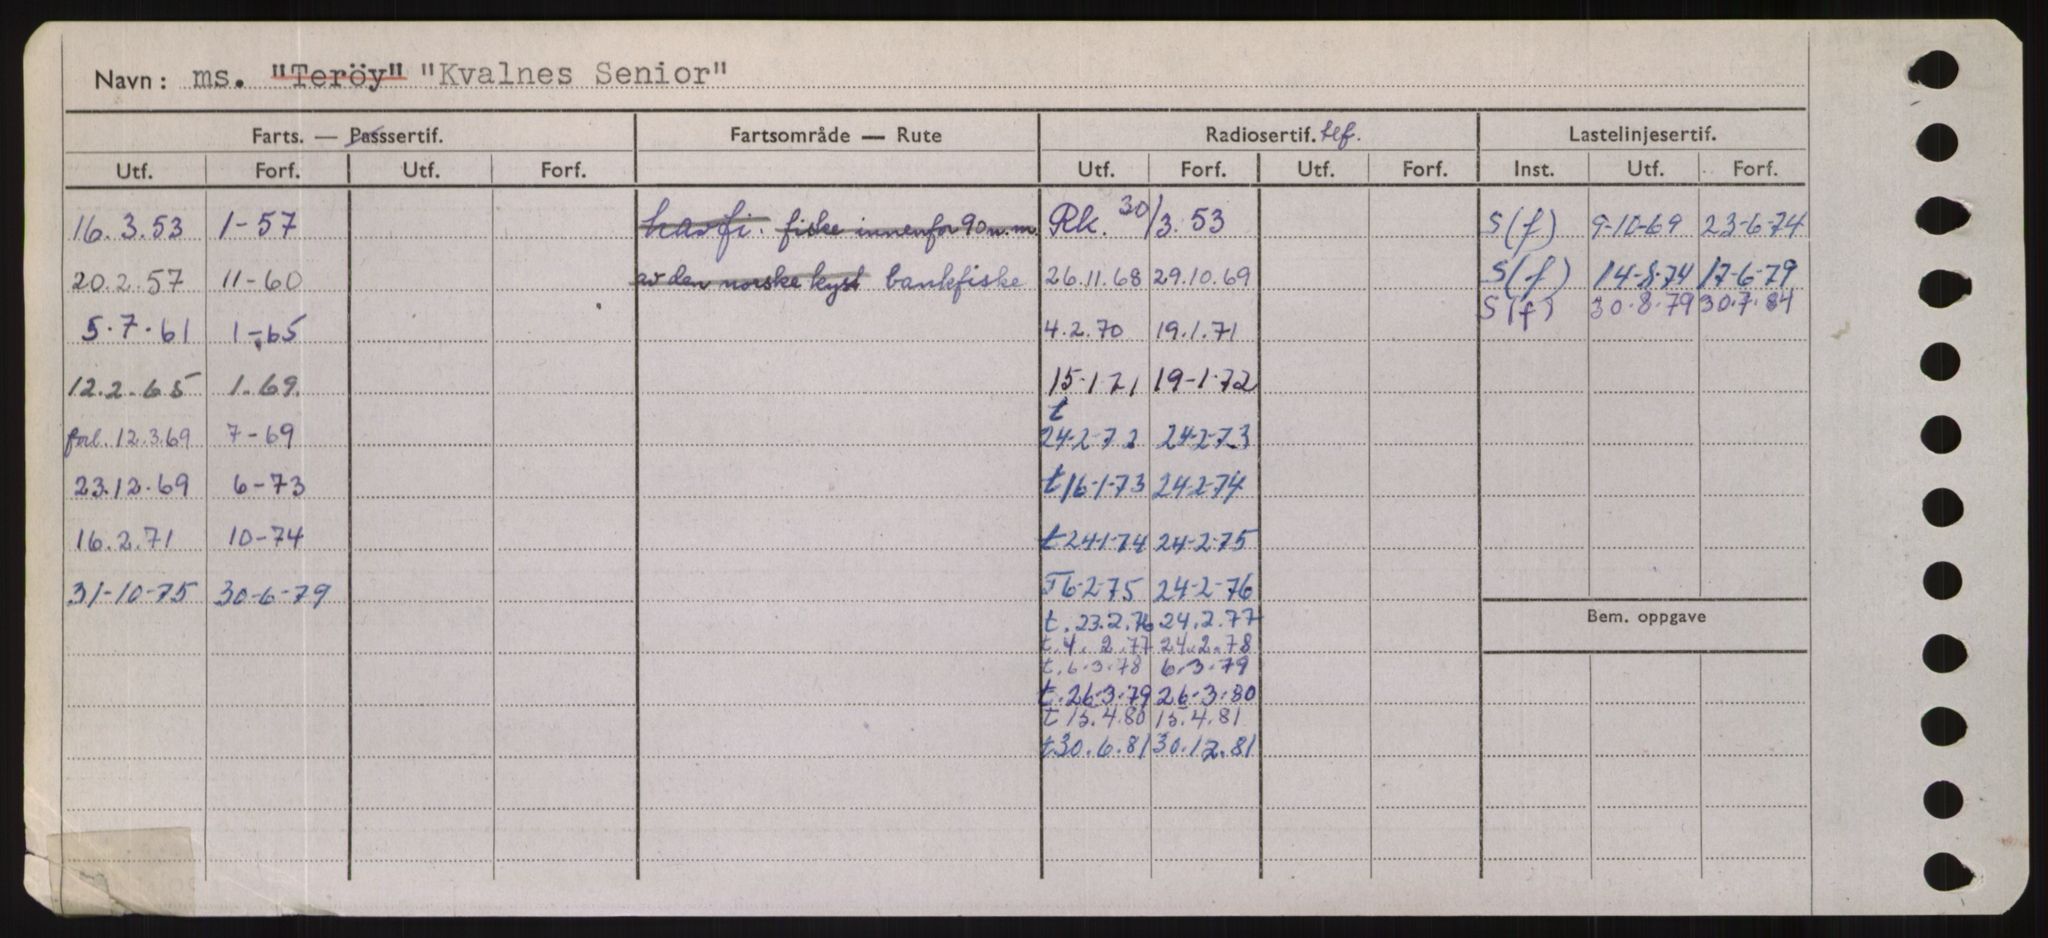 Navn: ms. "Teröy" "Kvalnes Senior"
Farts. — Passsertif. Fartsområde — Rute Radiosertif. telf. Lastelinjesertif.
Utf. Forf. Utf. Forf. Utf. Forf. Utf. Forf. Inst. Utf. Forf.
16.3.53 1-57 havfi. fiske innenfor 90 n.m. Rk. 30/3.53 S(f) 9-10-69 23-6-74
20.2.57 11-60 av den norske kyst bankfiske 26.11.68 29.10.69 S(f) 14-8-74 17-6-79
S(f) 30.8.79 30.7.84
5.7.61 1-65 4.2.70 19.1.71
12.2.65 1.69. 15-1-71 19-1-72
t
forl. 12.3.69 7-69 24-2-72 24-2-73
23.12.69 6-73 t 16-1-73 24-2-74
16.2.71 10-74 t 24-1-74 24-2-75
31-10-75 30-6-79 T 6-2-75 24-2-76
Bem. oppgave
t. 23.2.76 24.2.77
t. 4. 2.77 24.2.78
t. 6.3.78 6.3.79
t. 26.3.79 26.3.80
t 15.4.80 15.4.81
t. 30.6.81 30.12.81